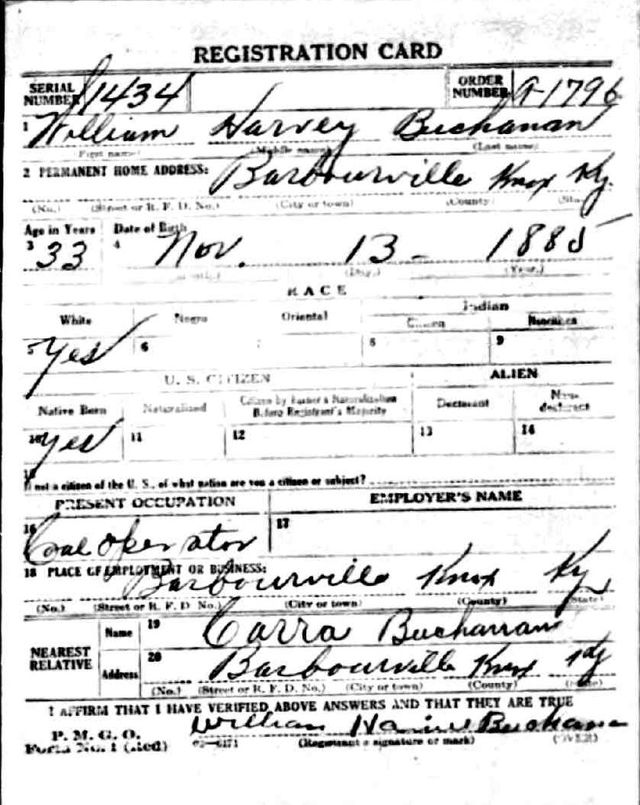 REGISTRATION CARD
SERIAL NUMBER 1434 ORDER NUMBER A-1796
1 William Harvey Buchanan
(First name) (Middle name) (Last name)
2 PERMANENT HOME ADDRESS: Barbourville Knox Ky.
(No.) (Street or R. F. D. No.) (City or town) (County) (State)
Age in Years Date of Birth
3 33 4 Nov. 13 - 1885
(Day.) (Year.)
RACE
White Negro Oriental Indian
Citizen Noncitizen
5 Yes 6 8 9
U. S. CITIZEN ALIEN
Native Born Naturalized Citizen by Father's Naturalization Before Registrant's Majority Declarant Non-declarant
10 Yes 11 12 13 14
15
If not a citizen of the U. S., of what nation are you a citizen or subject?
PRESENT OCCUPATION EMPLOYER'S NAME
16 Coal operator 17
18 PLACE OF EMPLOYMENT OR BUSINESS:
Barbourville Knox Ky
(No.) (Street or R. F. D. No.) (City or town) (County) (State)
NEAREST RELATIVE Name 19 Carra Buchanan
Address 20 Barbourville Knox Ky
(No.) (Street or R. F. D. No.) (City or town) (County) (State)
I AFFIRM THAT I HAVE VERIFIED ABOVE ANSWERS AND THAT THEY ARE TRUE
P. M. G. O. William Buchanan
Form No. 1 (Red) (Registrant's signature or mark) (OVER)